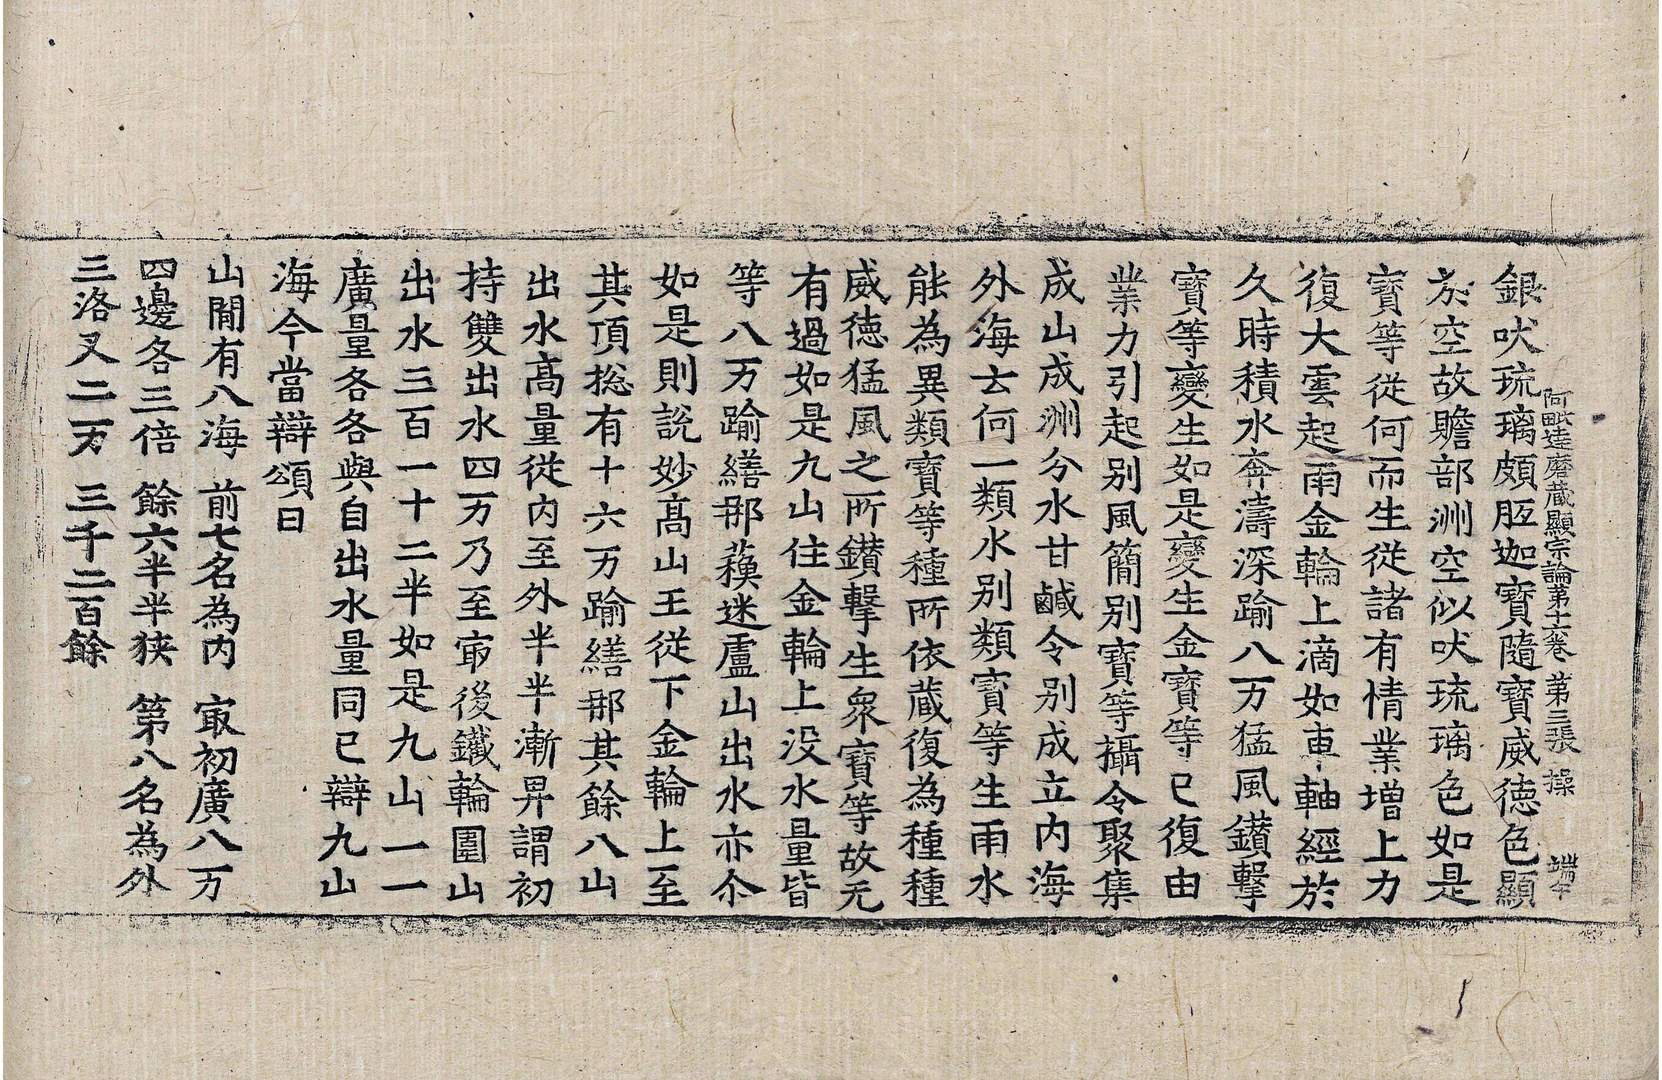 阿毗達磨藏顯宗論第十六卷 第三張 操 端午
銀吠琉璃頗胝迦寶隨寶威德色顯
於空故贍部洲空似吠琉璃色如是
寶等從何而生從諸有情業增上力
復大雲起雨金輪上滴如車軸經於
久時積水奔濤深踰八万猛風鑽擊
寶等變生如是變生金寶等已復由
業力引起別風簡別寶等攝令聚集
成山成洲分水甘鹹令別成立內海
外海云何一類水別類寶等生雨水
能為異類寶等種所依藏復為種種
威德猛風之所鑽擊生衆寶等故无
有過如是九山住金輪上沒水量皆
等八万踰繕那蘇迷盧山出水亦尒
如是則說妙高山王從下金輪上至
其頂捴有十六万踰繕那其餘八山
出水高量從內至外半半漸昇謂初
持雙出水四万乃至㝡後鐵輪圍山
出水三百一十二半如是九山一一
廣量各各與自出水量同已辯九山
海今當辯頌曰
山閒有八海 前七名為內 㝡初廣八万
四邊各三倍 餘六半半狹 第八名為外
三洛叉二万 三千二百餘